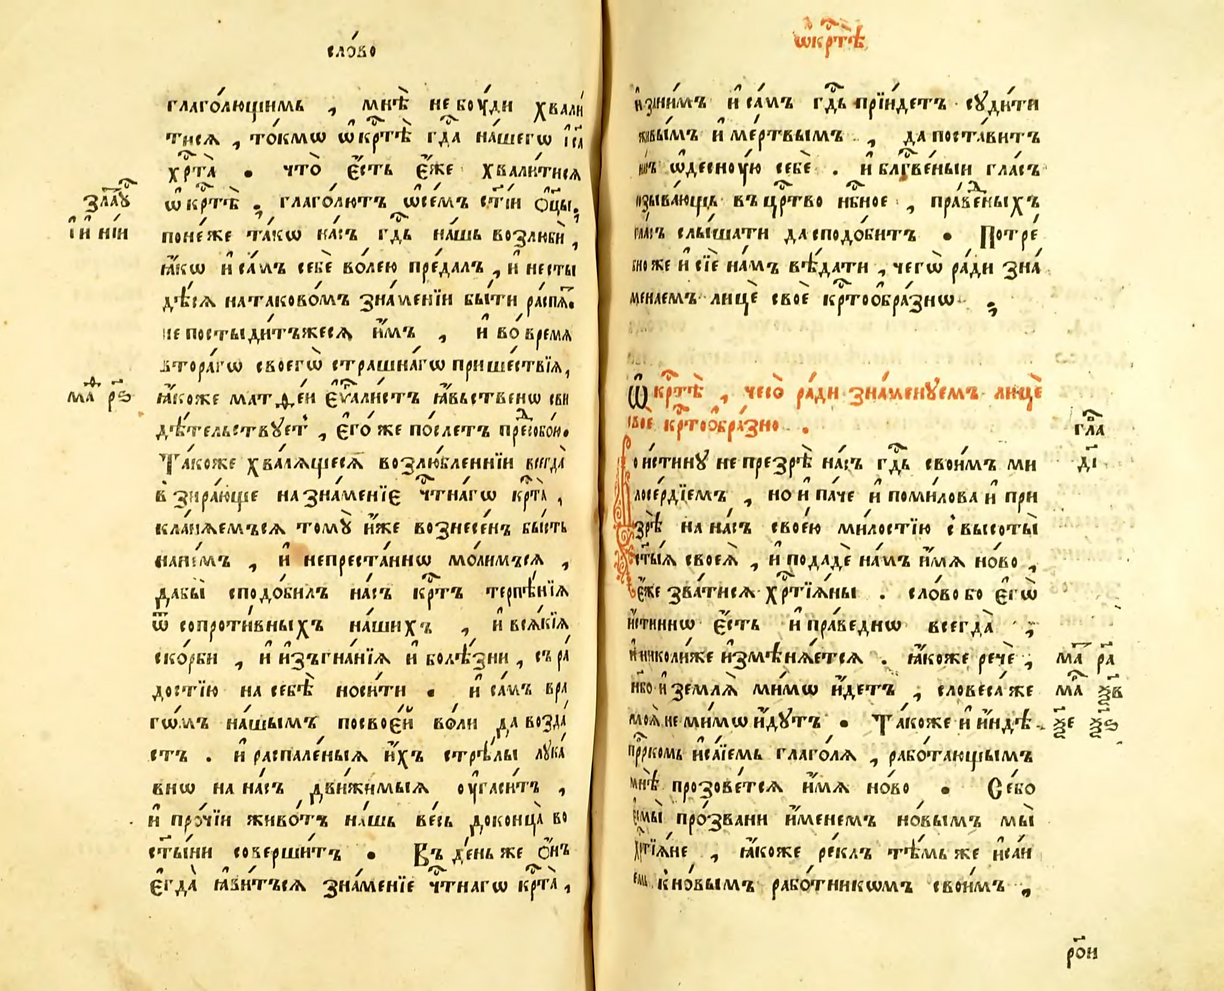 сло́во
глаго́лющимъ , мнѣ̀ не бꙋ́ди хвали́
тисѧ , то́кмѡ ѡ҆ крⷭ҇тѣ̀ гдⷭ҇а на́шегѡ і҆с҃а
хрⷭ҇та̀ . что̀ є҆́сть є҆́же хвали́тисѧ
злаⷮꙋ
ѡ҆ крⷭ҇тѣ̀ . глаго́лютъ ѡ҆ се́мъ ст҃і́и ѻ҆ц҃ы̀.
і҆ и҆ні́и
поне́же та́кѡ на́съ гдⷭ҇ь на́шъ возлюбѝ ,
ꙗ҆́кѡ и҆ са́мъ себѐ во́лею пре́далъ , и҆ не сты
дѣ́сѧ на таково́мъ зна́менїи бы́ти распѧ́.
не постыди́тъжесѧ и҆́мъ , и҆ во́ времѧ
второ́гѡ своегѡ̀ стра́шнагѡ прише́ствїѧ,
маⷴ҇ рѕ҃
ꙗ҆́коже матѳе́и є҆ѵⷢ҇али́стъ ꙗ҆́вьственѡ сви
дѣ́тельствꙋетъ , є҆го́ же по́слетъ пре́собо́ю.
Та́коже хва́лѧщеесѧ возлю́бленнїи всегда̀
взира́юще на зна́менїе чⷭ҇тна́гѡ крⷭ҇та̀ ,
кла́нѧемъсѧ томꙋ̀ и҆́же вознесе́нъ бы́сть
на не́мъ , и҆ непреста́ннѡ мо́лимъсѧ ,
дабы̀ сподо́билъ на́съ крⷭ҇тъ терпѣ́нїѧ
ѿ сопроти́вныхъ на́шихъ , и҆ всѧ́кїѧ
ско́рби , и҆ и҆згна́нїѧ и҆ болѣ́зни , съ ра́
достїю на себѣ̀ носи́ти . и҆ са́мъ вра
гѡ́мъ на́шымъ по свое́й во́ли да возда́
стъ . и҆ распале́ныѧ и҆́хъ стрѣ́лы лꙋка́
внѡ на на́съ дви́жимыѧ ѹ҆гаси́тъ ,
и҆ про́чїи живо́тъ на́шъ ве́сь доконца̀ во
ст҃ы́ни соверши́тъ . Въ де́нь же ѻ҆́нъ
є҆гда̀ ꙗ҆ви́тъсѧ зна́менїе чⷭ҇тна́гѡ крⷭ҇та̀ ,
ѡ҆ крⷭ҇тѣ̀
и҆ за ни́мъ и҆ са́мъ гдⷭ҇ь прїи́детъ сꙋди́ти
живы́мъ и҆ ме́ртвымъ , да поста́витъ
на́съ ѡ҆деснꙋ́ю себѐ . и҆ блгⷭ҇ве́ныи гла́съ
призыва́ющь въ црⷭ҇тво нбⷭ҇ное , пра́веⷣныхъ
гла́съ слы́шати да сподо́битъ . Потре́
бно же и҆ сїѐ на́мъ вѣ́дати , чегѡ̀ ра́ди зна́
менаемъ лицѐ своѐ крⷭ҇тоѻбра́знѡ ,
Ѡ҆ крⷭ҇тѣ̀ , чесо̀ ра́ди зна́менꙋемъ лицѐ
своѐ крⷭ҇тоѻбра́зно .
глаⷡ҇
ді҃
Пои́стинꙋ не презрѣ̀ на́съ гдⷭ҇ь свои́мъ ми
лосе́рдїемъ , но и҆ па́че и҆ поми́лова и҆ при
зрѣ̀ на на́съ свое́ю ми́лостїю с высоты̀
ст҃ы́ѧ своеѧ̀ , и҆ подадѐ на́мъ и҆́мѧ но́во ,
є҆́же зва́тисѧ хрⷭ҇тїѧ́ны . сло́во бо є҆гѡ̀
и҆́стиннѡ є҆́сть и҆ пра́веднѡ всегда̀ ,
и҆ николи́же и҆змѣнѧ́етсѧ . ꙗ҆́коже речѐ ,
маⷴ҇ ра҃
нбо и҆ землѧ̀ ми́мѡ и҆́детъ , словеса́ же
моѧ̀ не ми́мѡ и҆дꙋ́тъ . Та́коже и҆ и҆ндѣ̀
прⷪ҇ркомъ и҆са́їемъ глаго́лѧ , рабо́тающымъ
мнѣ̀ прозове́тсѧ и҆́мѧ но́во . Се́бо
и҆ мы̀ про́звани и҆́менемъ но́вымъ мы̀
хрⷭ҇тїѧ́не , ꙗ҆́коже ре́клъ тѣ́мъ же и҆са́и
емъ к но́вымъ рабо́тникѡмъ свои́мъ ,
рⷪ҇ни